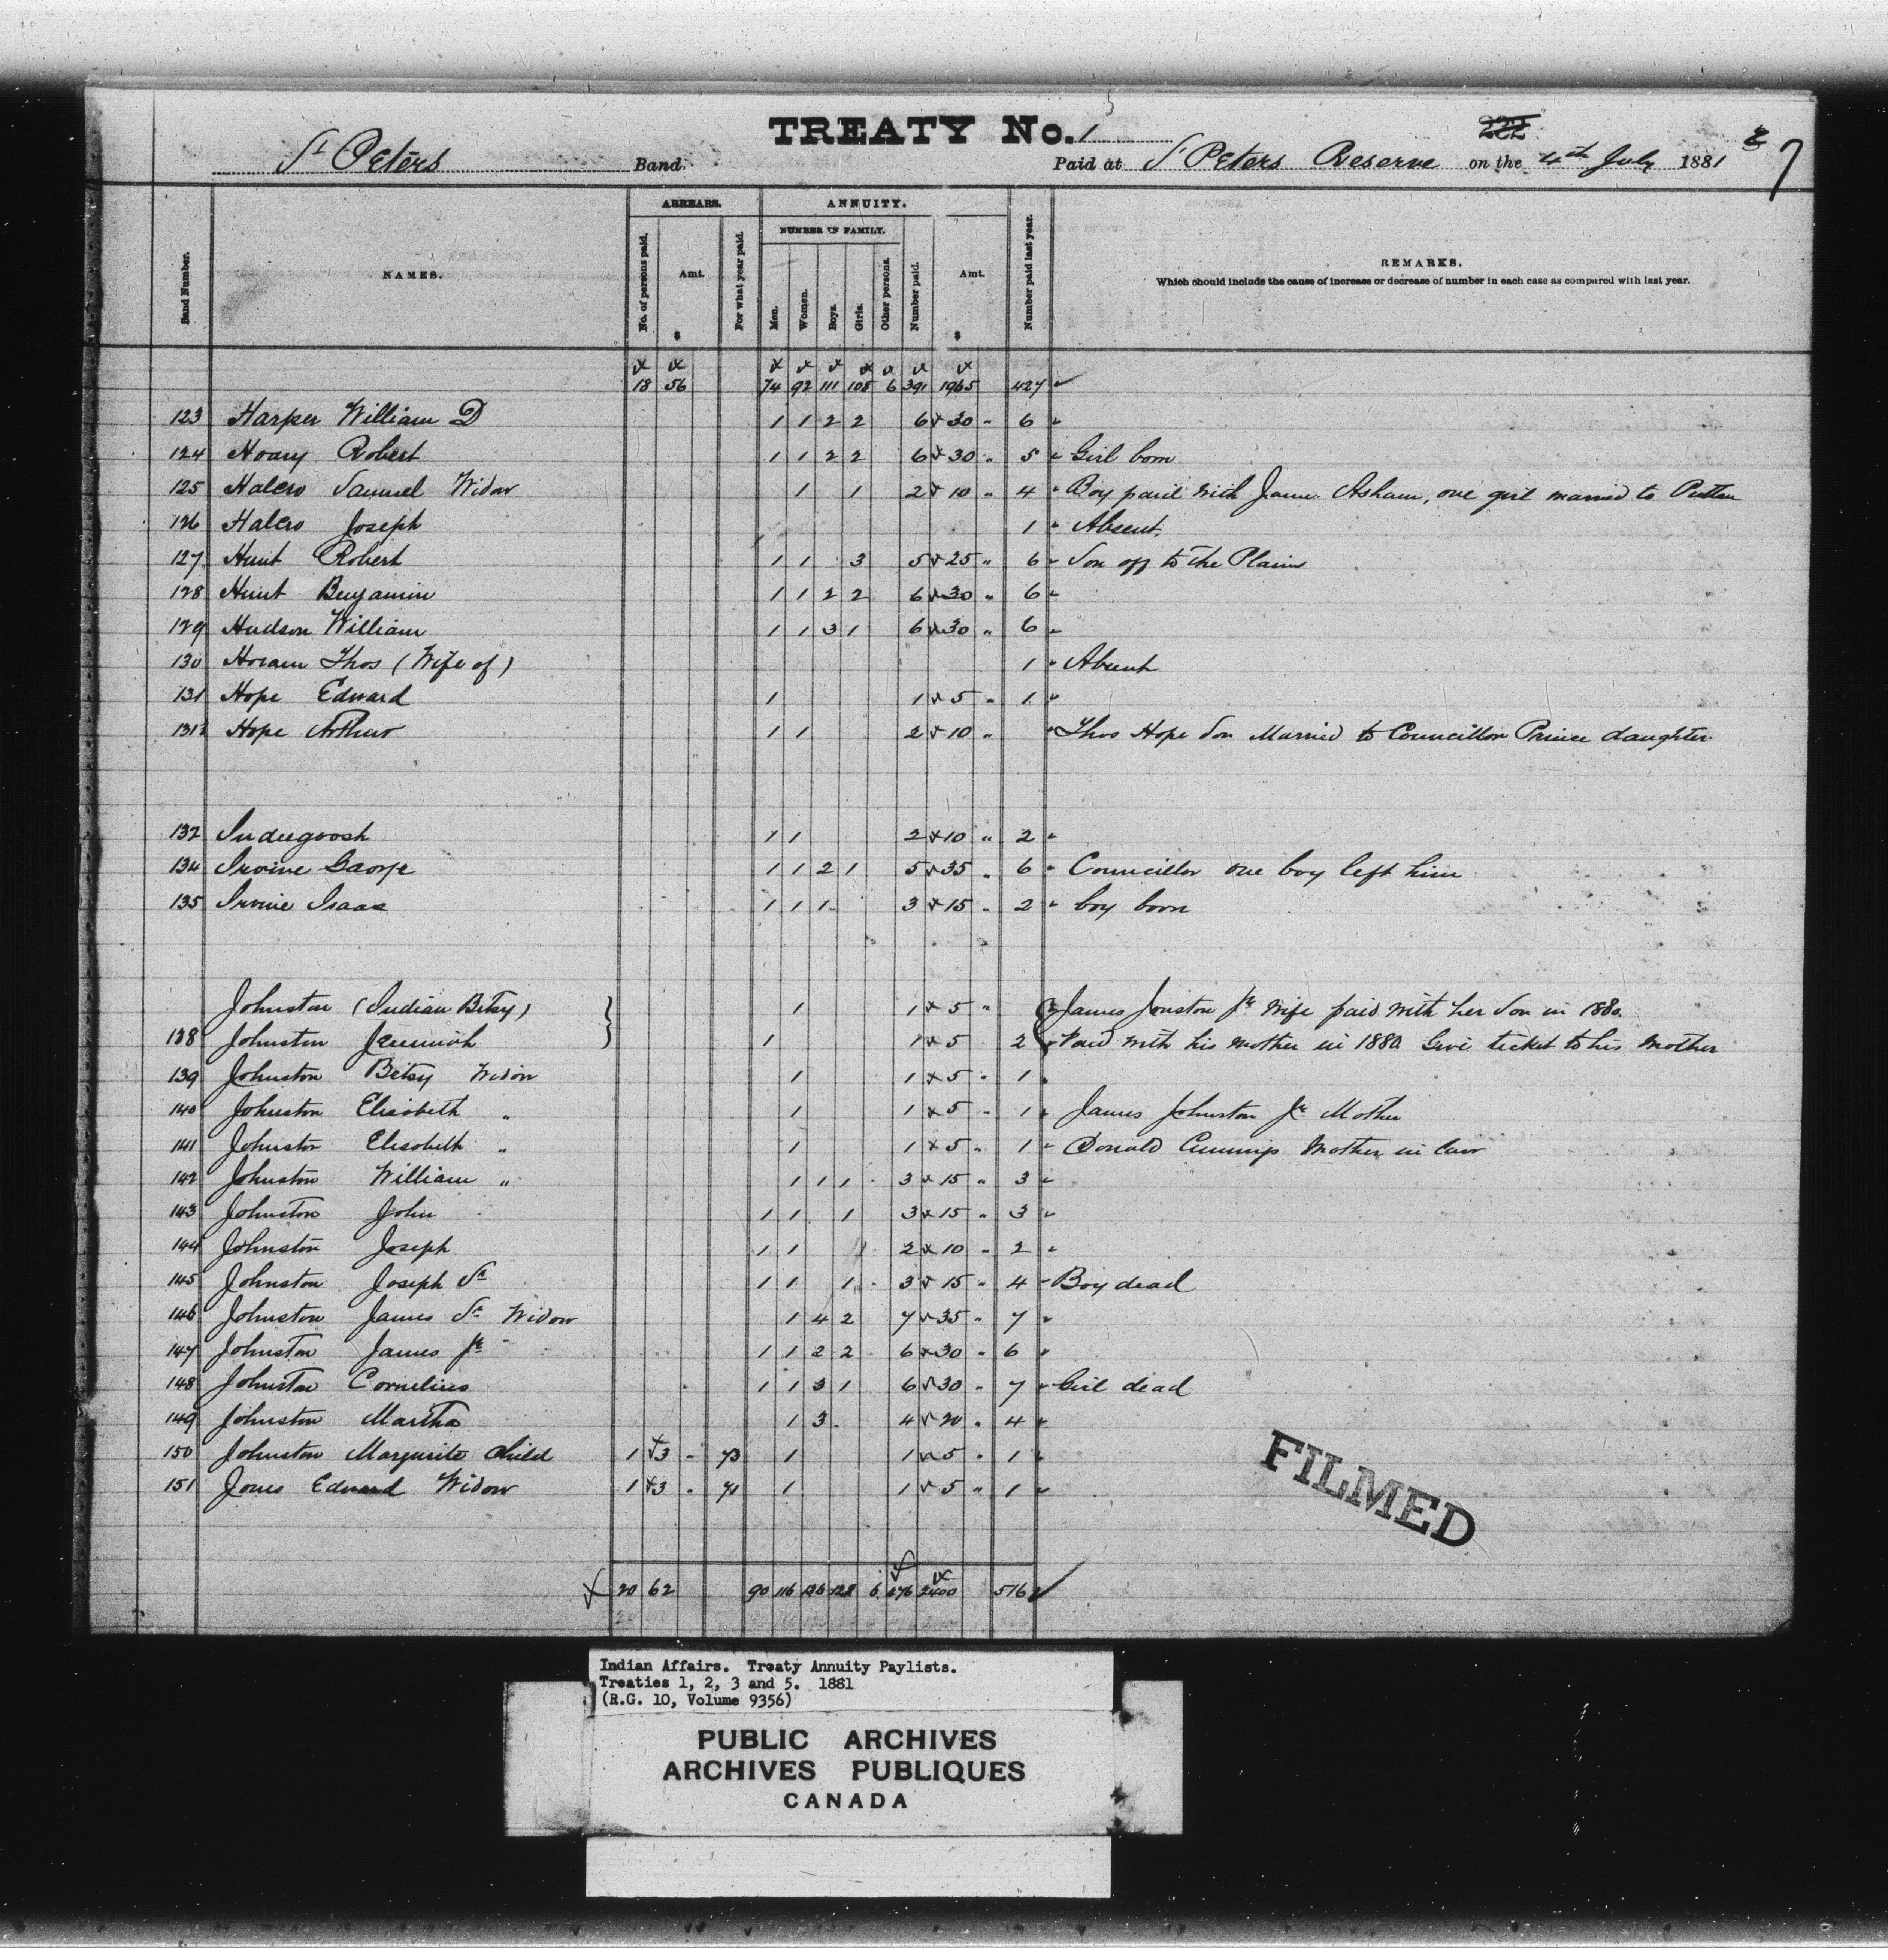 TREATY No. 1
222
St Peters Band.
Paid at St Peters Reserve on the 4th July 1881
7
ARREARS. ANNUITY.
NUMBER OF FAMILY.
Band Number. NAMES. No. of persons paid. Amt. $ For what year paid. Men. Women. Boys. Girls. Other persons. Number paid. Amt. $ Number paid last year. REMARKS.
Which should include the cause of increase or decrease of number in each case as compared with last year.
18 56 74 92 111 108 6 391 1965 427
123 Harper William D 1 1 2 2 6 30 " 6
124 Hoary Robert 1 1 2 2 6 30 " 5 Girl born
125 Halcro Samuel Widow 1 1 2 10 " 4 Boy paid with James Asham, one girl married to
126 Halcro Joseph 1 Absent.
127 Hunt Robert 1 1 3 5 25 " 6 Son off to the Plains
128 Hunt Benjamin 1 1 2 2 6 30 " 6
129 Hudson William 1 1 3 1 6 30 " 6
130 Thos (Wife of) 1 Absent
131 Hope Edward 1 1 5 " 1
131½ Hope Arthur 1 1 2 10 " Thos Hope Son Married to Councillor Prince daughter
132 Indeegoosh 1 1 2 10 " 2
134 Irvine George 1 1 2 1 5 35 " 6 Councillor one boy left him
135 Irvine Isaac 1 1 1 3 15 " 2 boy born
Johnston (Indian Betsy) } 1 1 5 " { James Jonston Jr wife paid with her Son in 1880.
138 Johnston Jeremiah } 1 1 5 2 { Paid with his mother in 1880 Give ticket to his Mother
139 Johnston Betsy Widow 1 1 5 " 1
140 Johnston Elisabeth " 1 1 5 " 1 James Johnston Jr Mother
141 Johnston Elisabeth " 1 1 5 " 1 Donald Cummings Mother in law
142 Johnston William " 1 1 1 3 15 " 3
143 Johnston John 1 1 1 3 15 " 3
144 Johnston Joseph 1 1 2 10 " 2
145 Johnston Joseph Sr 1 1 1 3 15 " 4 Boy dead
146 Johnston James Sr Widow 1 4 2 7 35 " 7
147 Johnston James Jr 1 1 2 2 6 30 " 6
148 Johnston Cornelius 1 1 3 1 6 30 " 7 Girl dead
149 Johnston Martha 1 3 4 20 " 4
150 Johnston Margurite Child 1 3 - 73 1 1 5 " 1
151 Jones Edward Widow 1 3 - 71 1 1 5 " 1
FILMED
20 62 90 116 136 128 6 476 2400 516
Indian Affairs. Treaty Annuity Paylists.
Treaties 1, 2, 3 and 5. 1881
(R.G. 10, Volume 9356)
PUBLIC ARCHIVES
ARCHIVES PUBLIQUES
CANADA